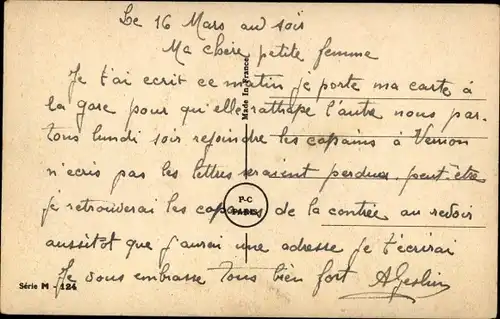 Le 16 Mars au soir
Ma chère petite femme
Je t'ai ecrit ce matin je porte ma carte à
la gare pour qu'elle rattrape l'autre nous par-
tons lundi soir rejoindre les copains à Vernon
n'ecris pas les lettres seraient perdues peut-être
je retrouverai les copains de la contrée au revoir
aussitot que j'aurai une adresse je t'écrirai
Je vous embrasse tous bien fort
Made in France
P-C
PARIS
Série M - 124